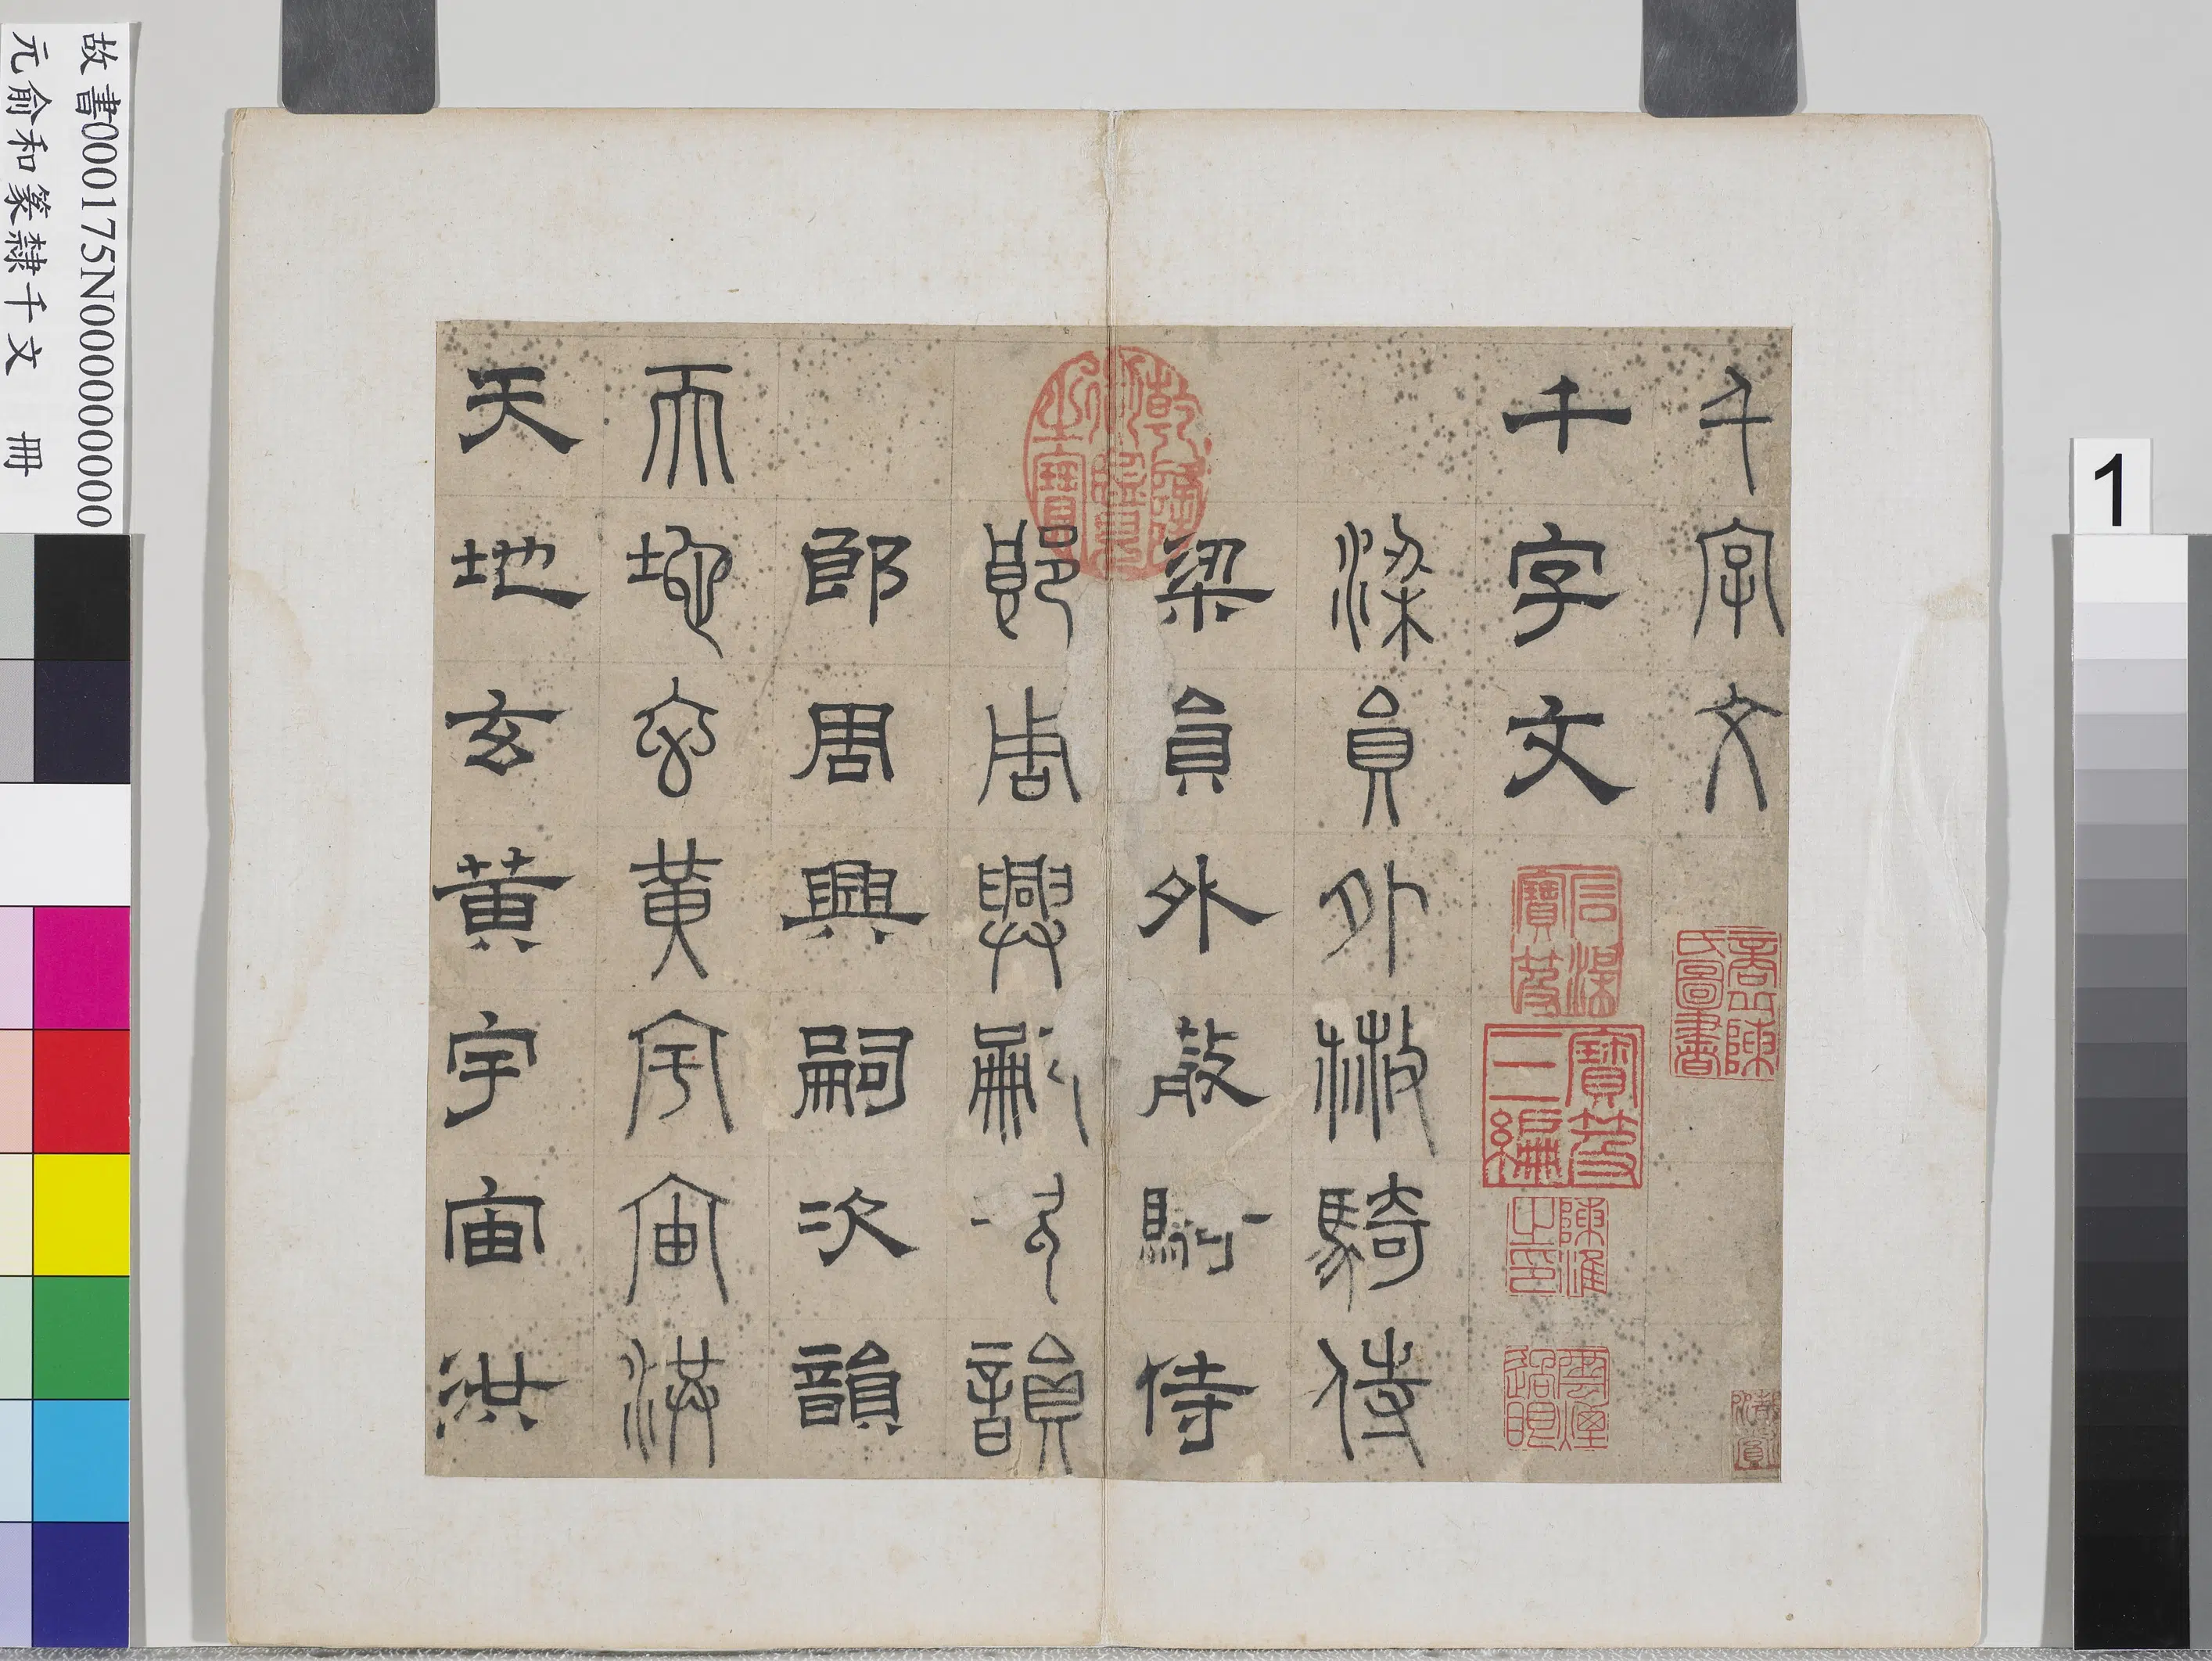 千字文
千字文
梁員外散騎侍
梁員外散騎侍
郎周興嗣次韻
郎周興嗣次韻
天地玄黃宇宙洪
天地玄黃宇宙洪
乾隆御覽之寶
寶笈三編
故書000175N000000000
元俞和篆隸千文 冊
1